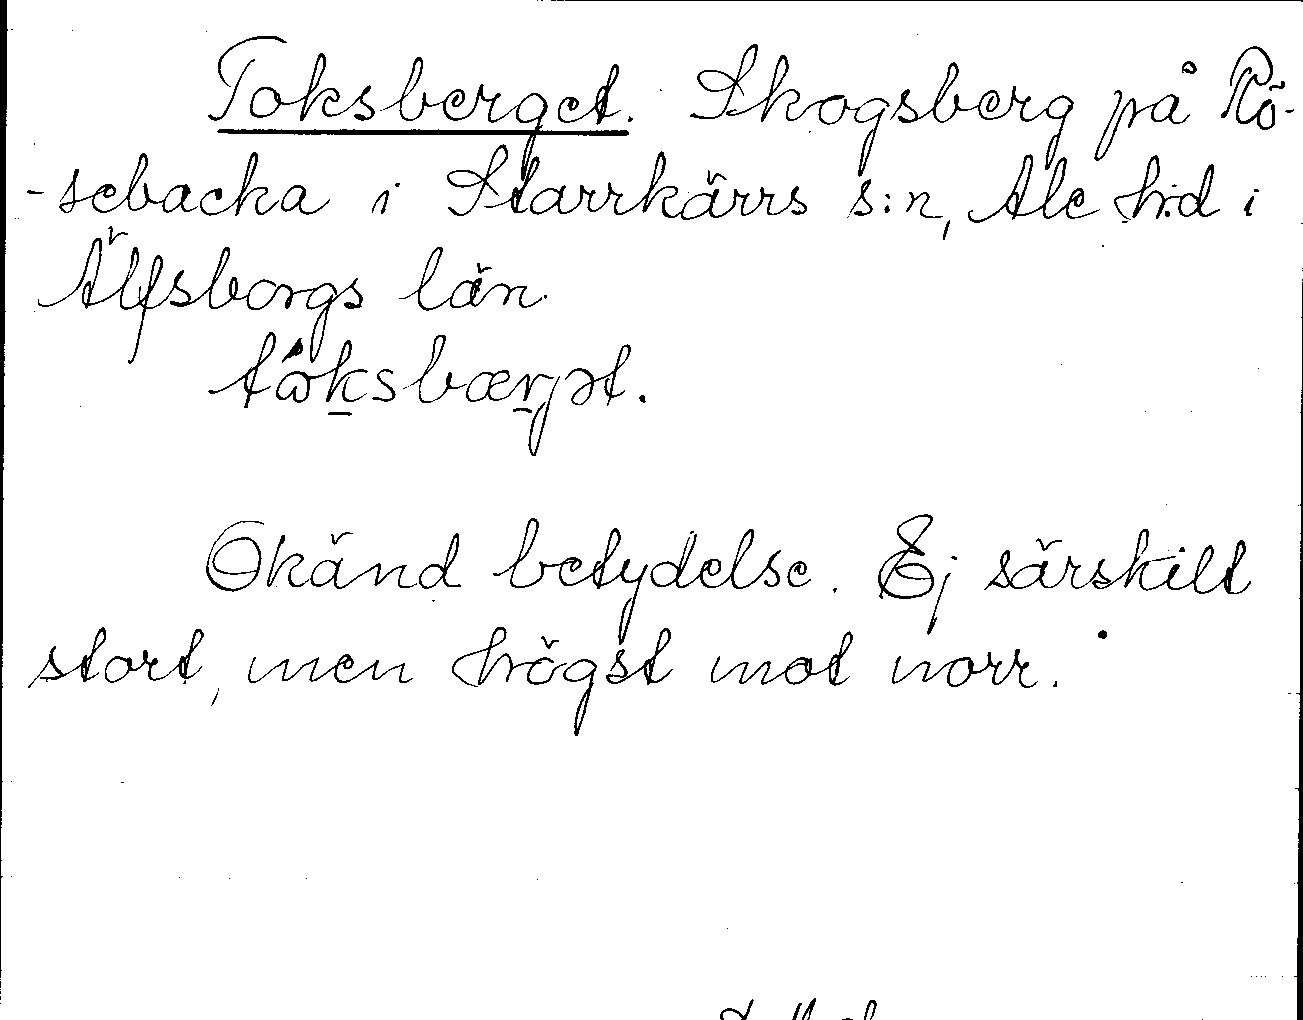 Toksberget. Skogsberg på Rö-
-sebacka i Starrkärrs s:n, Ale h:d i
Älfsborgs län.
tὼksbærjət.
Okänd betydelse. Ej särskilt
stort, men högst mot norr.